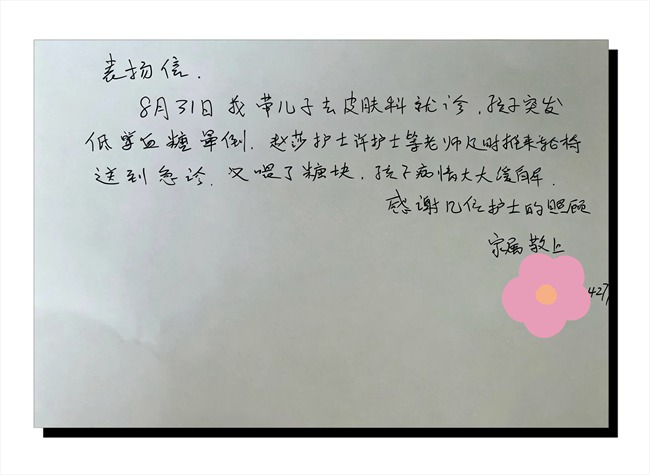 表扬信.
8月31日我带儿子去皮肤科就诊,孩子突发
低学血糖晕倒.赵莎护士许护士等老师及时推来轮椅
送到急诊.又喂了糖块,孩子病情大大缓解.
感谢几位护士的照顾
家属敬上
427